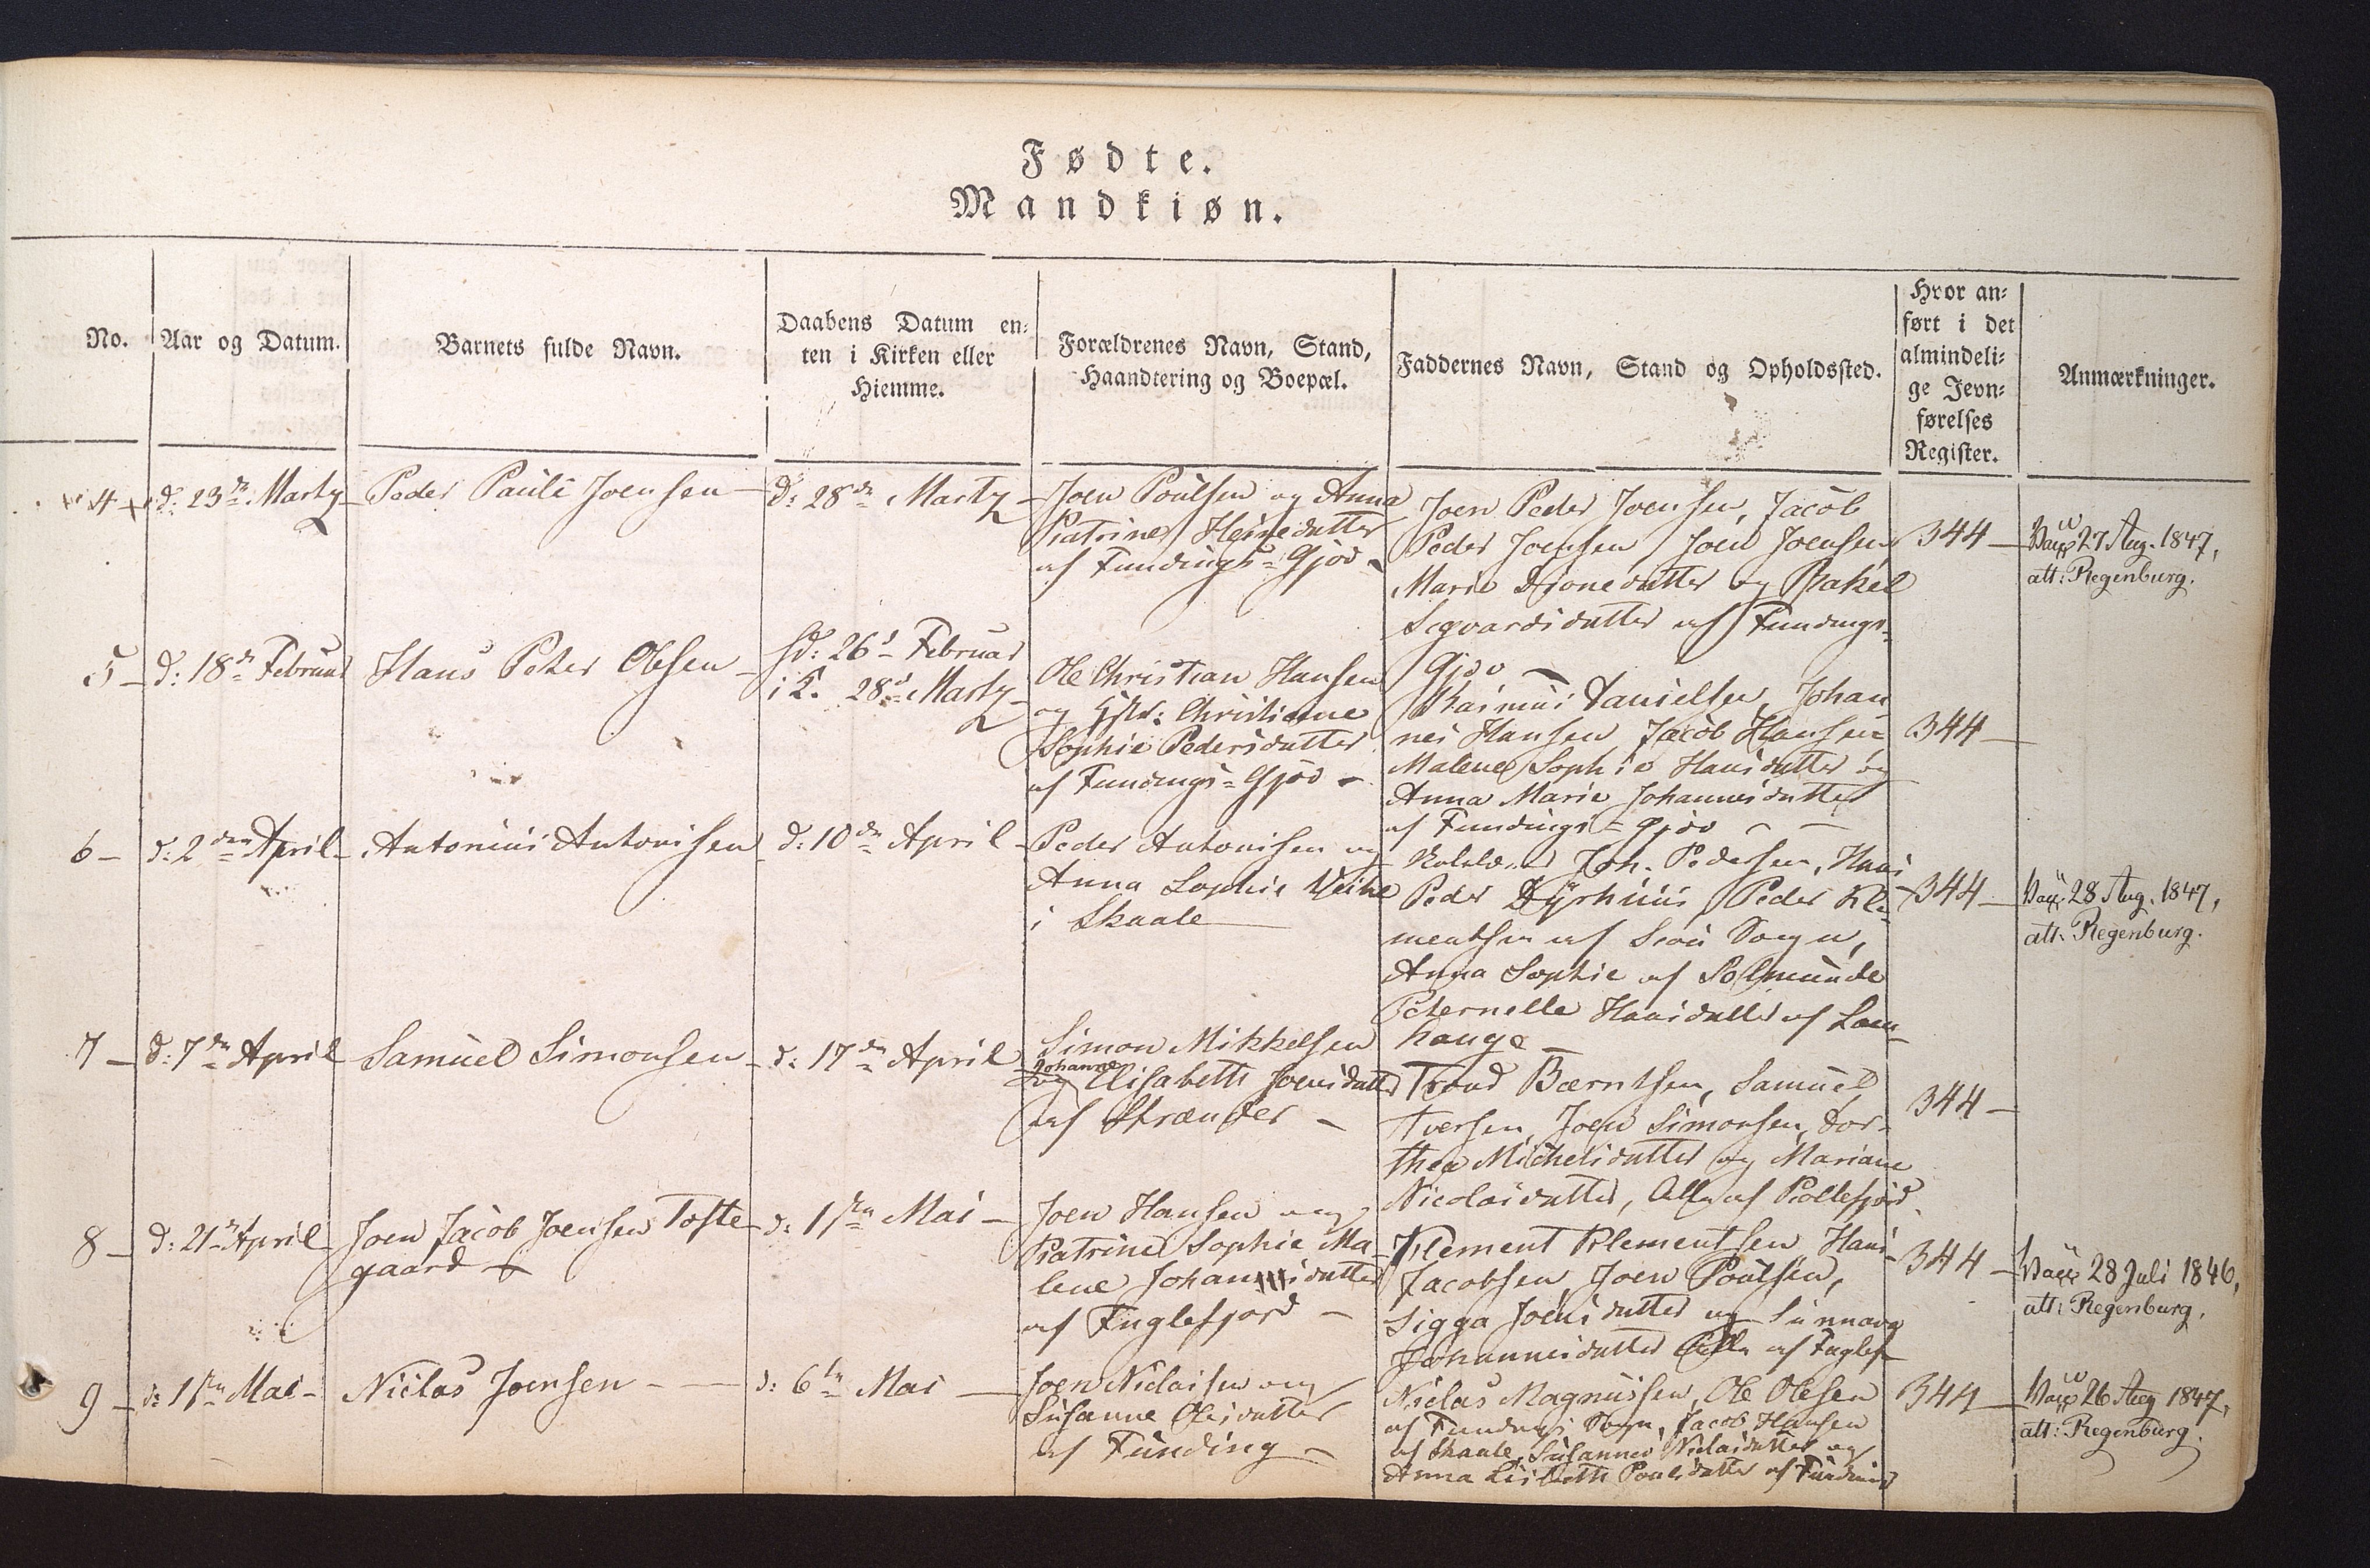 Fødte.
Mandkiøn.
No.
Aar og Datum.
Barnets fulde Navn.
Daabens Datum en-
ten i Kirken eller
Hiemme.
Forældrenes Navn, Stand,
Haandtering og Boepæl.
Faddernes Navn, Stand og Opholdssted.
Hvor an-
ført i det
almindeli-
ge Jevn-
førelses
Register.
Anmærkninger.
4
d: 23de Marty
Peder Pauli Joensen
d: 28de Marty
Joen Poulsen og Anna
Katrine Heinedatter
af Fundings-Gjov
Joen Peder Joensen, Jacob
Peder Joensen, Joen Joensen,
Marie Djonedatter og Rakel
Sigvardsdatter af Fundings-
Gjov
344
Vacc 27 Aug. 1847,
att: Regenburg.
5
d: 18de Februar
Hans Peter Olesen
Hd: 26de Februar
i K. 28de Marty
Ole Christian Hansen
og Hstr: Christiane
Sophie Pedersdatter
af Fundings-Gjov
Rasmus Danielsen, Johan
nes Hansen, Jacob Hansen
Malene Sophie Hansdatter og
Anna Marie Johannesdatter
af Fundings-Gjov
344
6
d: 2den April
Antonius Antonisen
d: 10de April
Peder Antonisen og
Anna Sophie Weihe
i Skaale
Joh. Pedersen, Hans
Peder Dyrhuus, Peder Kle-
mentsen af Sogn,
Anna Sophie af Solmunde
Peternelle Hansdatter af Lam-
hauge
344
Vacc: 28 Aug. 1847,
att. Regenburg.
7
d: 7de April
Samuel Simonsen
d: 17de April
Simon Mikkelsen
Johanne
og Elisabeth Joensdatter
af Strænder
Trond Bærntsen, Samuel
Iversen, Joen Simonsen, Dor-
thea Michelsdatter og Mariane
Nicolaisdatter, Alle af Kollefjord
344
8
d: 21de April
Joen Jacob Joensen Tofte-
gaard
d: 1ste Mai
Joen Hansen og
Katrine Sophie Ma-
lene Johannesdatter
af Fuglefjord
Klement Klementsen, Hans
Jacobsen, Joen Poulsen,
Sigga Joensdatter og Sunnava
Johannesdatter Alle af Fuglef
344
Vacc 28 Juli 1846,
att: Regenburg.
9
d: 1ste Mai
Niclas Joensen
d: 6te Mai
Joen Niclaisen og
Susanne Olesdatter
af Funding
Niclas Magnussen, Ole Olesen
af Fundings Sogn, Jacob Hansen
af Skaale, Susanne Niclaisdatter og
Anna Lisbeth Poulsdatter af Funding
344
Vacc 26 Aug 1847,
att: Regenburg.